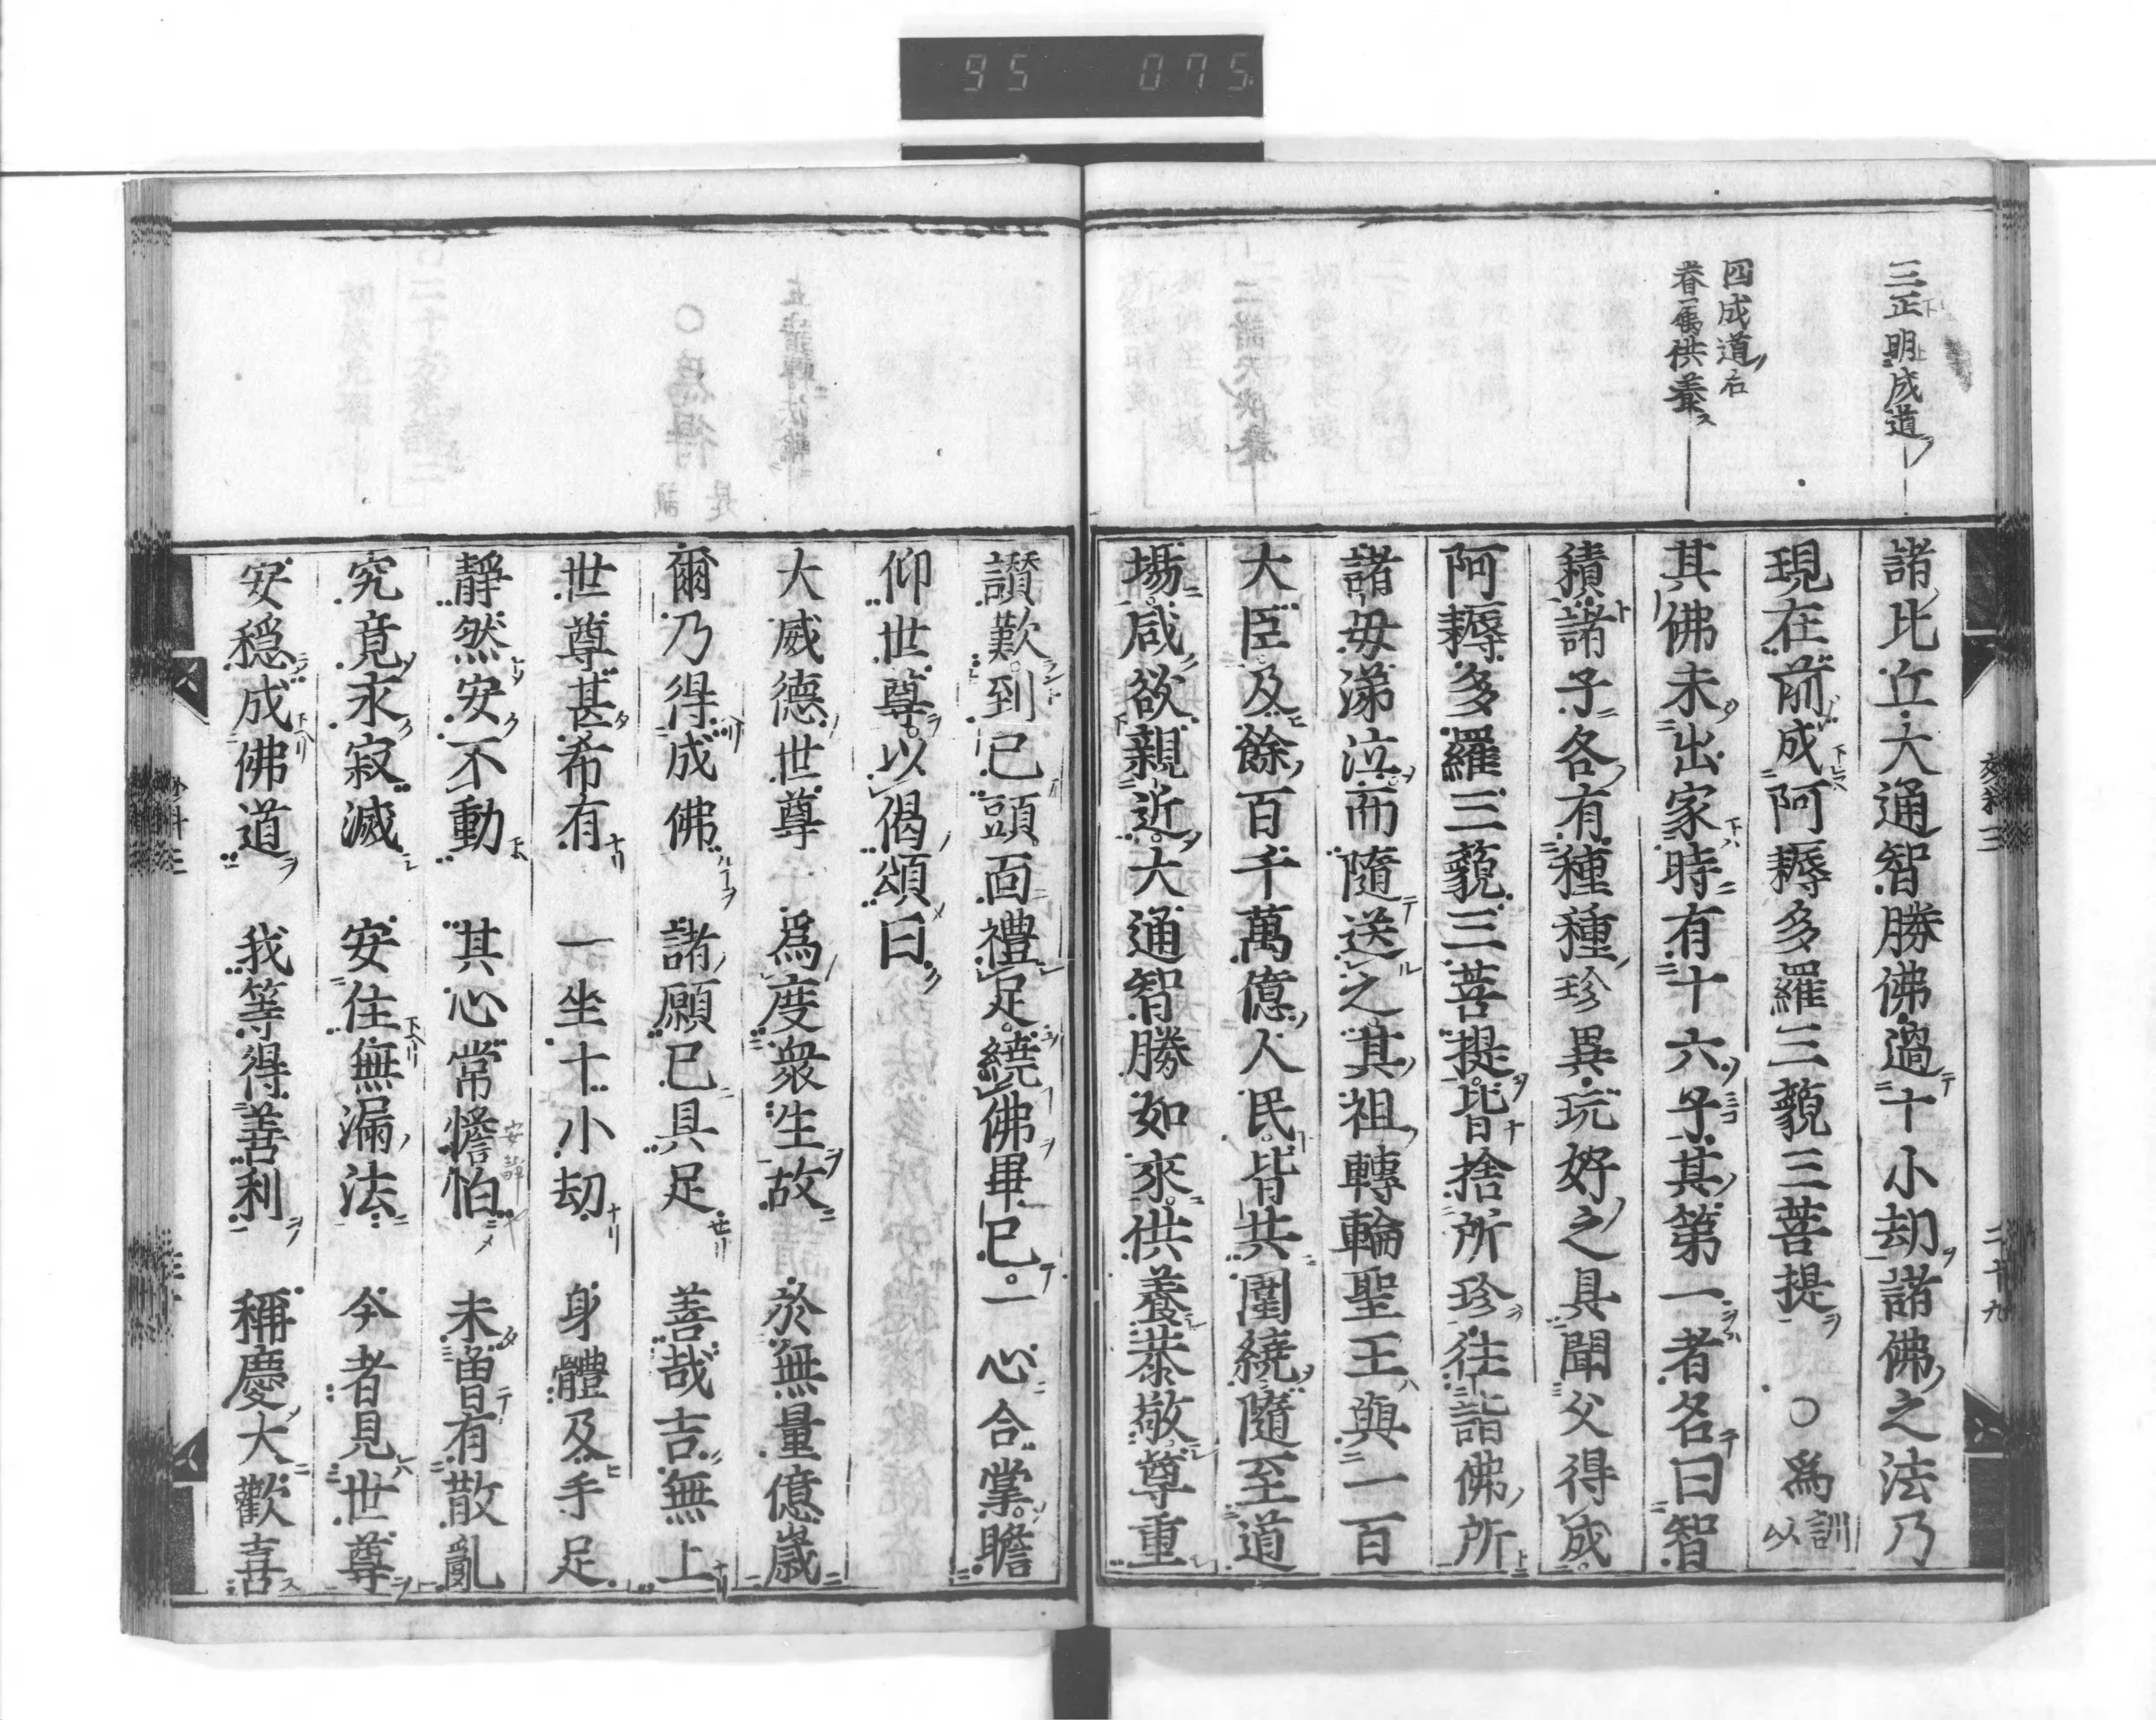 95 075
三正明成道
四成道
眷屬供養
諸比丘大通智勝佛過十小劫諸佛之法乃
現在前成阿耨多羅三藐三菩提 ○爲訓以
其佛未出家時有十六子其第一者名曰智
積諸子各有種種珍異玩好之具聞父得成
阿耨多羅三藐三菩提皆捨所珍往詣佛所
諸母涕泣而隨送之其祖轉輪聖王與一百
大臣及餘百千萬億人民皆共圍繞隨至道
場咸欲親近大通智勝如來供養恭敬尊重
二十九
讃歎到已頭面禮足繞佛畢已一心合掌瞻
仰世尊以偈頌曰
大威德世尊 爲度衆生故 於無量億歲
爾乃得成佛 諸願已具足 善哉吉無上
世尊甚希有 一坐十小劫 身體及手足
靜然安不動 其心常憺怕 未曾有散亂
究竟永寂滅 安住無漏法 今者見世尊
安穩成佛道 我等得善利 稱慶大歡喜